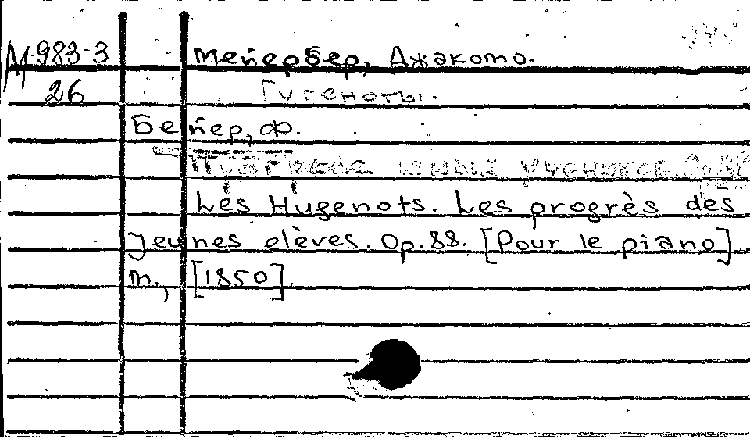 М983-3 Мейербер, Джакомо.
26 Гугеноты.
Бейер, Ф.
юных учеников.
Les Hugenots. Les progrès des
jeunes elèves. Op.88. [Pour le piano]
m., [1850]